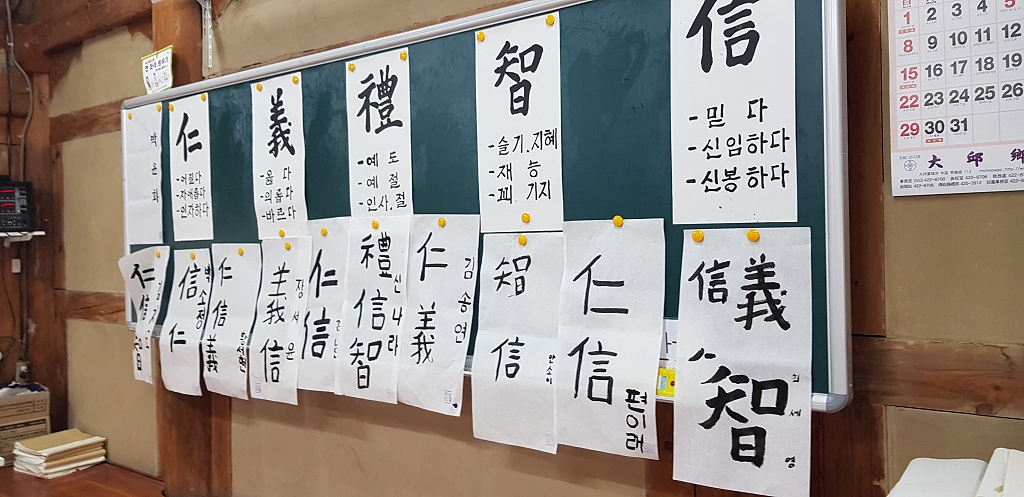 박윤화
仁
-어질다
-자애롭다
-인자하다
義
-옳 다
-의롭다
-바르다
禮
-예 도
-예 절
-인사.절
智
-슬기.지혜
-재 능
-꾀 기지
信
-믿 다
-신임하다
-신봉하다
仁
信
智
信
仁
박소정
仁
信
義
義
信
장서윤
仁
信
禮
信
智
신나라
仁
義
김송연
智
信
안소이
仁
信
편이래
信
義
智
최세영
1 2 3 4 5
8 9 10 11 12
15 16 17 18 19
22 23 24 25 26
29 30 31
大邱鄕